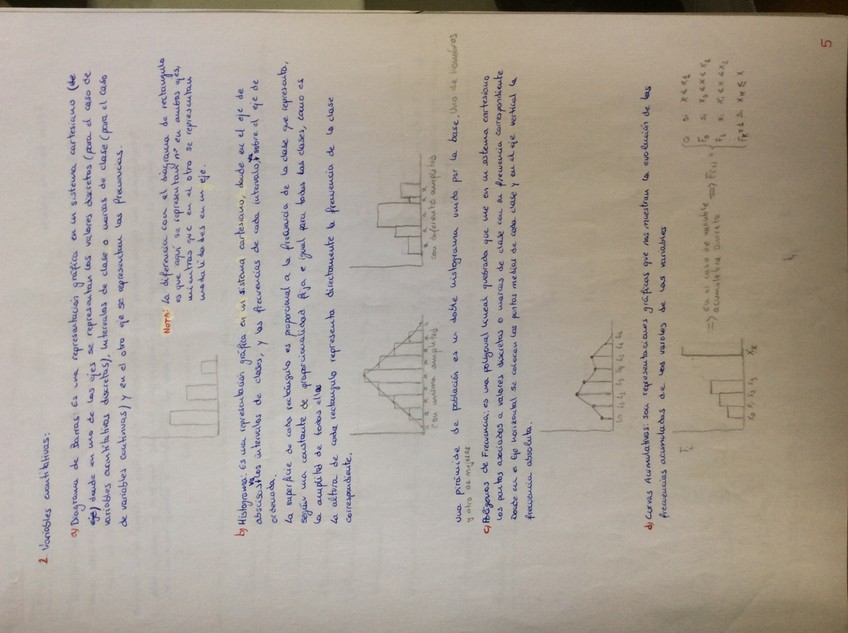 2. Variables cuantitativas:
a) Diagrama de Barras: Es una representación gráfica en un sistema cartesiano (de
eje) donde en uno de los ejes se representan los valores discretos (para el caso de
variables cuantitativas discretas), intervalos de clase o marcas de clase (para el caso
de variables continuas) y en el otro eje se representan las frecuencias.
NOTA: La diferencia con el diagrama de rectángulo
es que aquí se representan nº en ambos ejes,
mientras que en el otro se representan
modalidades en un eje.
b) Histograma: Es una representación gráfica en un sistema cartesiano, donde en el eje de
abscisas va los intervalos de clases, y las frecuencias de cada intervalo, va sobre el eje de
ordenada.
La superficie de cada rectángulo es proporcional a la frecuencia de la clase que representa,
según una constante de proporcionalidad fija e igual para todas las clases, como es
la amplitud de todas ellas
La altura de cada rectángulo representa directamente la frecuencia de la clase
correspondiente.
con misma amplitud
con diferente amplitud
Una pirámide de población es un doble histograma unido por la base, Uno de hombres
y otro de mujeres
c) Polígonos de Frecuencia: es una poligonal lineal quebrada que une en un sistema cartesiano
los puntos asociados a valores discretos o marcas de clase con su frecuencia correspondiente
Donde en el eje horizontal se colocan los puntos medios de cada clase y en el eje vertical la
frecuencia absoluta.
L0 L1 L2 L3 L4 L5 L6
d) Curvas Acumulativas: son representaciones gráficas que nos muestran la evolución de las
frecuencias acumuladas de los valores de las variables
Fi
x0 x1 x2 x3 xk
=> En el caso de variable
acumulativa discreta => F(x) =
0 si x < x1
F1 si x1 ≤ x < x2
Fk = 1 si xk ≤ x
5